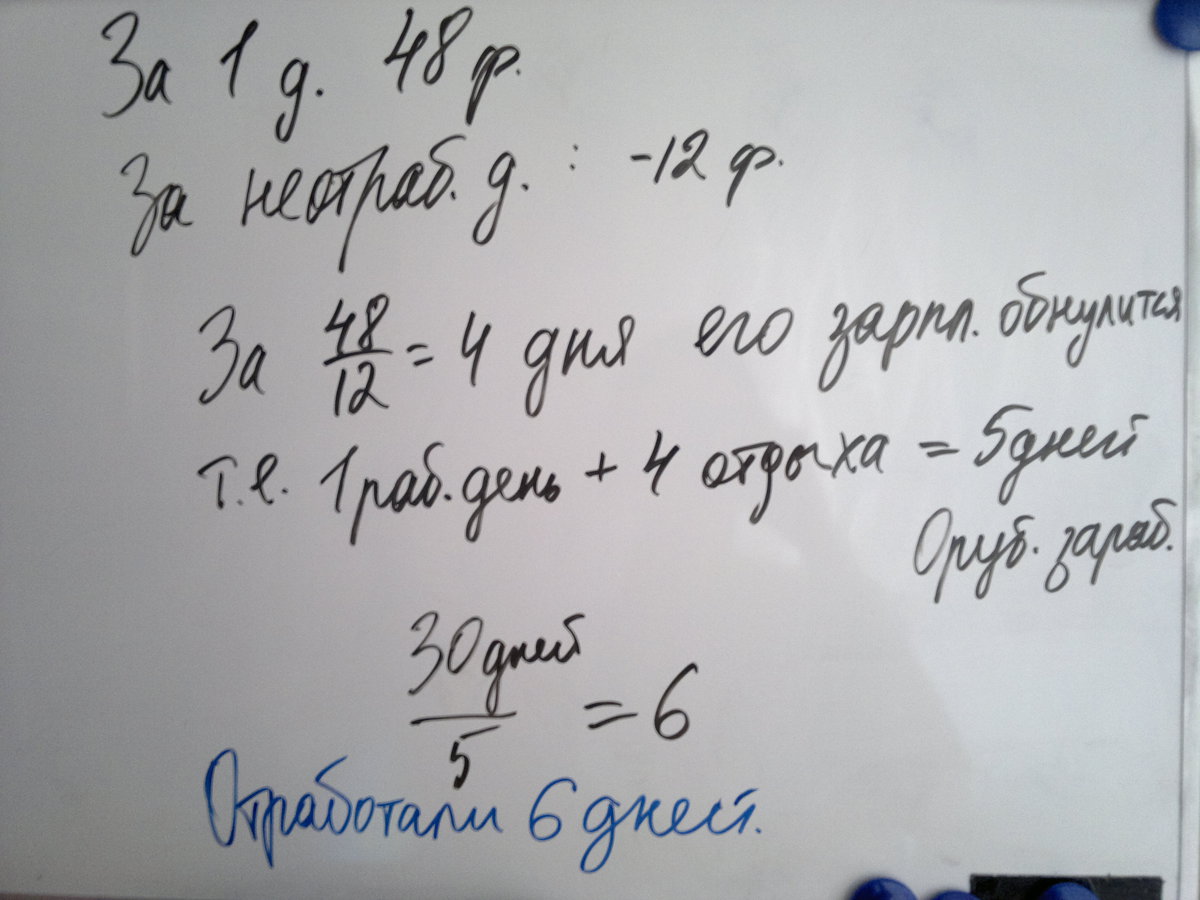 За 1 д. 48 ф.
За неотраб. д. : -12 ф.
За 48/12 = 4 дня его зарпл. обнулится
т.е. 1 раб. день + 4 отдыха = 5 дней
0 руб. зараб.
30 дней / 5 = 6
Отработали 6 дней.